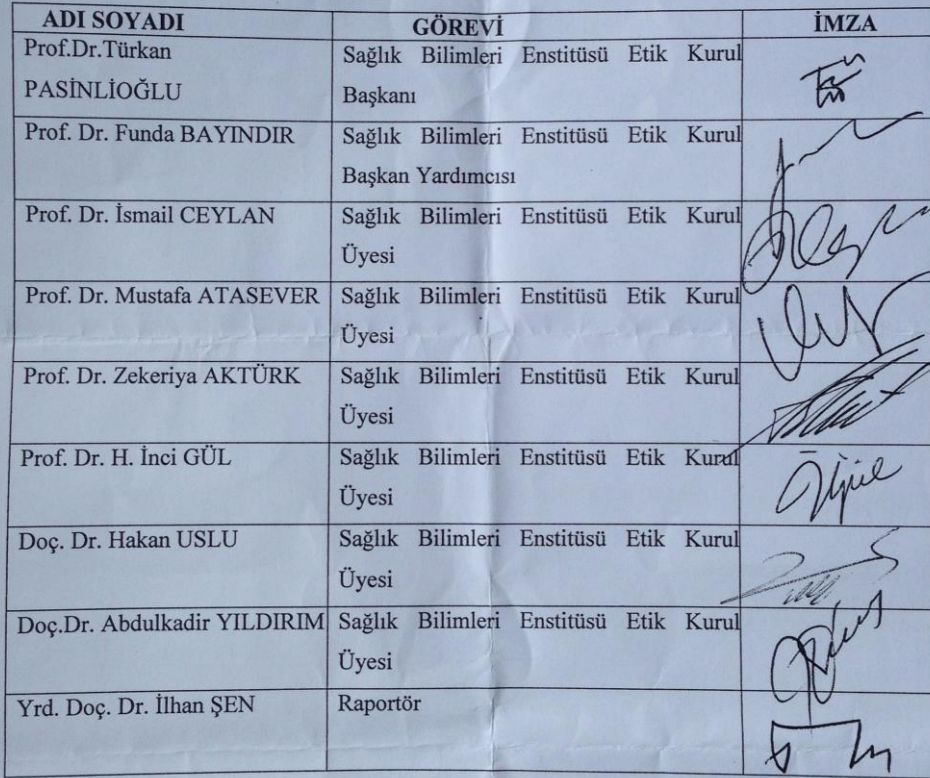 ADI SOYADI GÖREVİ İMZA
Prof.Dr.Türkan Sağlık Bilimleri Enstitüsü Etik Kurul
PASİNLİOĞLU Başkanı
Prof. Dr. Funda BAYINDIR Sağlık Bilimleri Enstitüsü Etik Kurul
Başkan Yardımcısı
Prof. Dr. İsmail CEYLAN Sağlık Bilimleri Enstitüsü Etik Kurul
Üyesi
Prof. Dr. Mustafa ATASEVER Sağlık Bilimleri Enstitüsü Etik Kurul
Üyesi
Prof. Dr. Zekeriya AKTÜRK Sağlık Bilimleri Enstitüsü Etik Kurul
Üyesi
Prof. Dr. H. İnci GÜL Sağlık Bilimleri Enstitüsü Etik Kurul
Üyesi
Doç. Dr. Hakan USLU Sağlık Bilimleri Enstitüsü Etik Kurul
Üyesi
Doç.Dr. Abdulkadir YILDIRIM Sağlık Bilimleri Enstitüsü Etik Kurul
Üyesi
Yrd. Doç. Dr. İlhan ŞEN Raportör